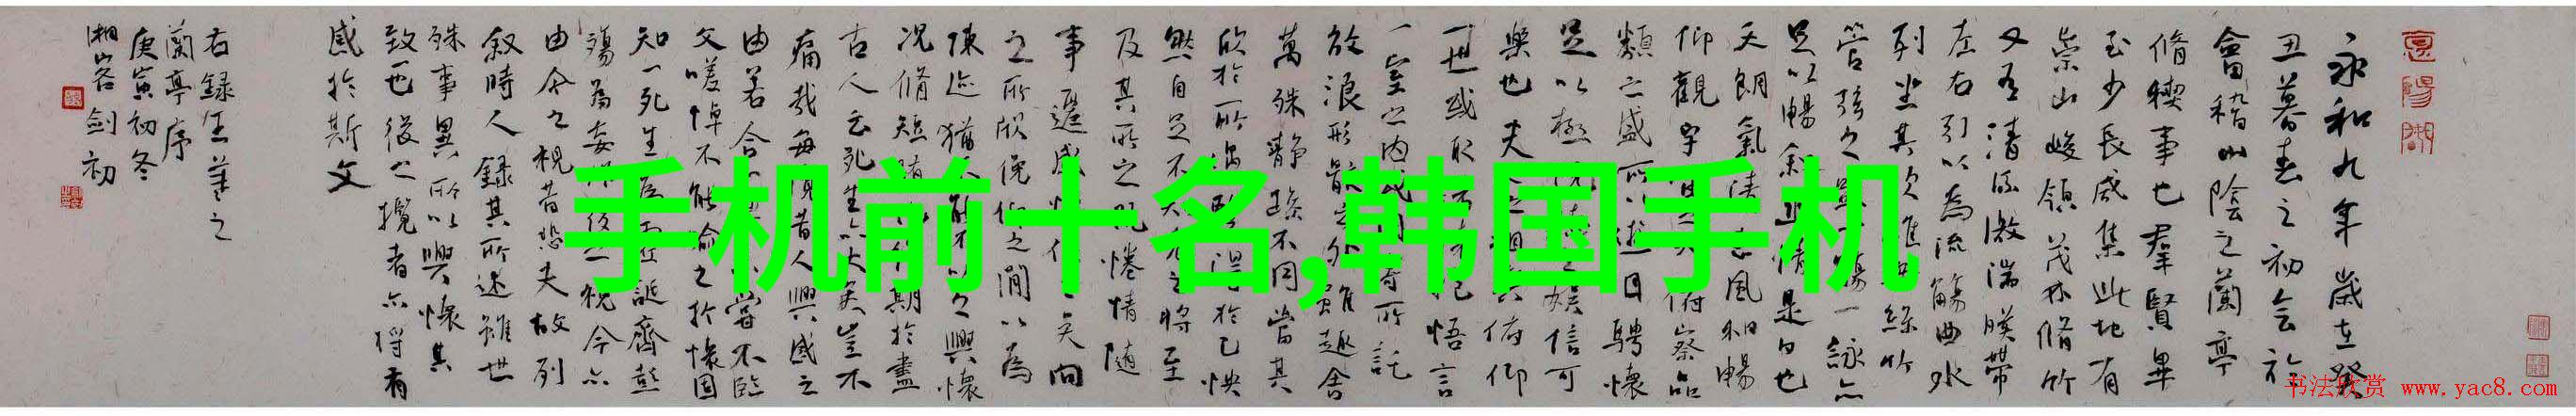 永和九年歲在癸
丑暮春之初会於
會稽山陰之蘭亭
脩稧事也羣賢畢
至少長咸集此地有
崇山峻領茂林脩竹
又有清流激湍暎帶
左右引以為流觴曲水
列坐其次雖絲竹
管弦之盛一觴一詠亦
足以暢叙幽情是日也
天朗氣清惠風和暢
仰觀宇俯察品
類之盛所以遊目騁懷
足以極之娱信可
樂也夫之相與俯仰
一世或取抱悟言
一室之内或因寄所託
放浪形骸之外雖趣舍
萬殊静躁不同當其
欣於所遇得於己怏
然自足不老之將至
及其所之既惓情随
事遷感之矣向
之所欣俛仰之間以為
陳迹猶不能不以之興懷
況脩短期於盡
古人云死生亦大矣豈不
痛哉每昔人興感之
由若合一嘗不臨
文嗟悼不能喻之於懷固
知一死生為誕齊彭
殤為妄作後之視今亦
由今之視昔悲夫故列
叙時人録其所述雖世
殊事異所以興懷其
致一也後之攬者亦将有
感於斯文
右録王羲之
蘭亭序
庚寅初冬
湘客劍初
手机前十名,韩国手机
书法欣赏 www.yac8.com